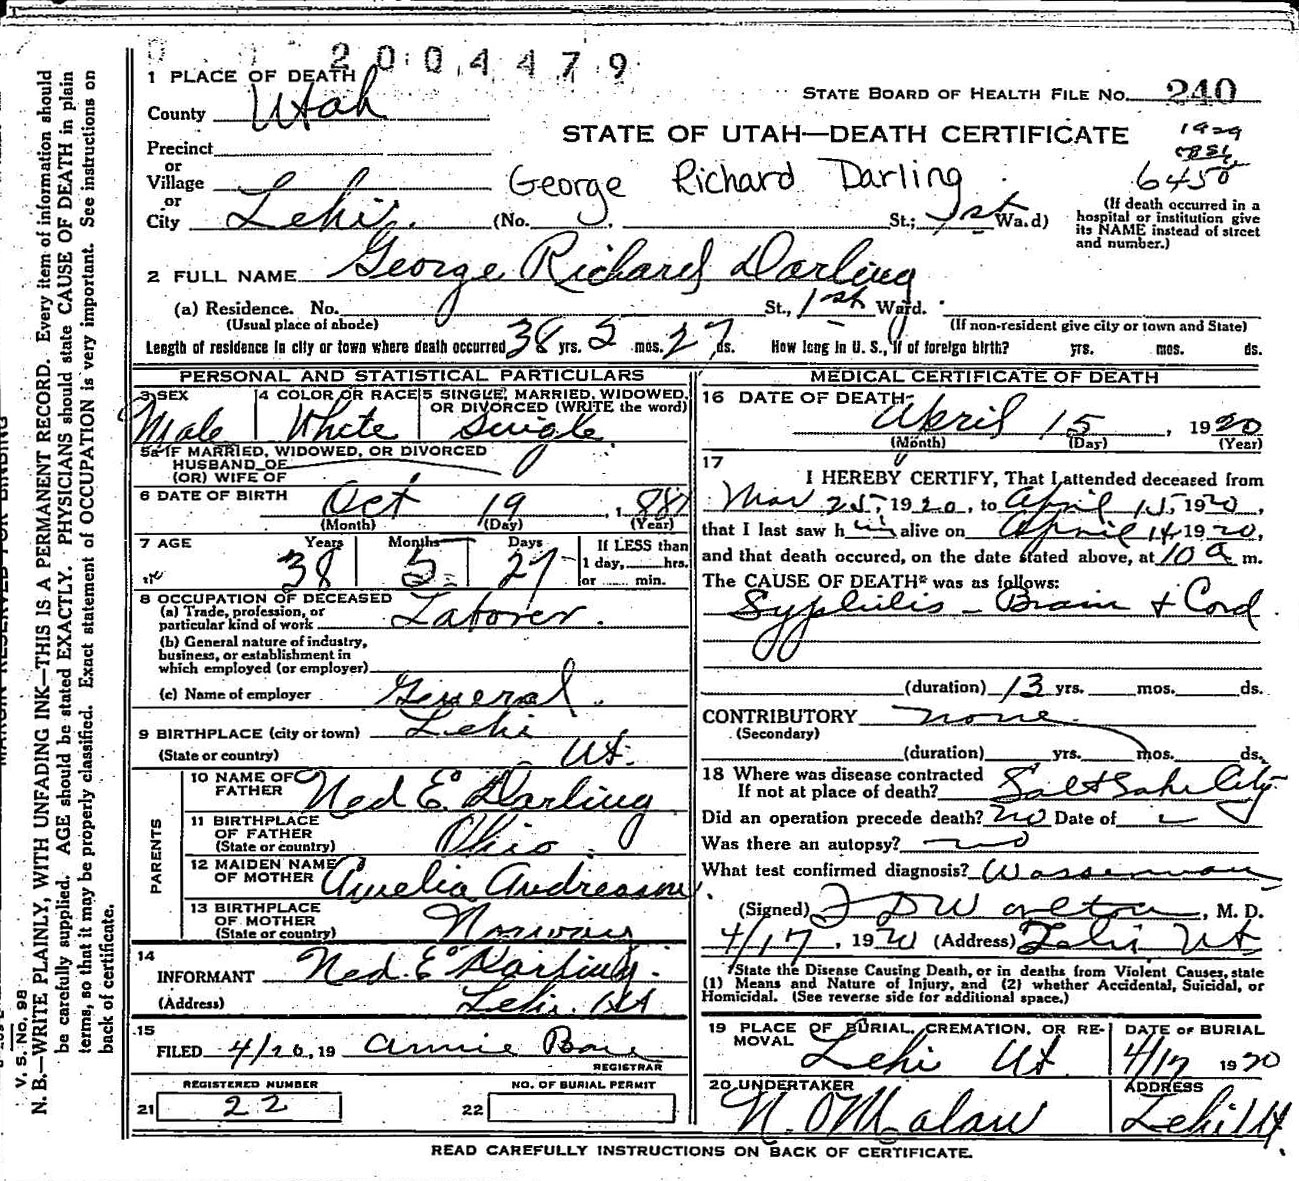 2004479
1 PLACE OF DEATH
STATE BOARD OF HEALTH FILE NO. 240
County Utah
STATE OF UTAH—DEATH CERTIFICATE
1929
Precinct
or
Village
George Richard Darling
6450
or
City Lehi. (No. St.; 1st Wa.d)
(If death occurred in a hospital or institution give its NAME instead of street and number.)
2 FULL NAME George Richard Darling
(a) Residence. No. St., 1st Ward.
(Usual place of abode) (If non-resident give city or town and State)
Length of residence in city or town where death occurred 38 yrs. 5 mos. 27 ds. How long in U. S., if of foreign birth? yrs. mos. ds.
PERSONAL AND STATISTICAL PARTICULARS
3 SEX Male
4 COLOR OR RACE White
5 SINGLE, MARRIED, WIDOWED, OR DIVORCED (WRITE the word) Single
5a IF MARRIED, WIDOWED, OR DIVORCED
HUSBAND OF
(OR) WIFE OF
6 DATE OF BIRTH Oct 19, 1881
(Month) (Day) (Year)
7 AGE Years Months Days If LESS than
38 5 27 1 day, hrs.
or min.
8 OCCUPATION OF DECEASED
(a) Trade, profession, or
particular kind of work Laborer.
(b) General nature of industry,
business, or establishment in
which employed (or employer)
(c) Name of employer General.
9 BIRTHPLACE (city or town) Lehi
(State or country) Ut.
PARENTS
10 NAME OF FATHER Ned E. Darling
11 BIRTHPLACE OF FATHER (State or country) Ohio.
12 MAIDEN NAME OF MOTHER Amelia Andreason
13 BIRTHPLACE OF MOTHER (State or country) Norway
14
INFORMANT Ned E. Darling.
(Address) Lehi. Ut
15
FILED 4/20, 19 Annie
REGISTRAR
REGISTERED NUMBER NO. OF BURIAL PERMIT
21 22 22
MEDICAL CERTIFICATE OF DEATH
16 DATE OF DEATH April 15, 1920
(Month) (Day) (Year)
17
I HEREBY CERTIFY, That I attended deceased from
Mar 25, 1920, to April 15, 1920,
that I last saw him alive on April 14 1920,
and that death occured, on the date stated above, at 10 a m.
The CAUSE OF DEATH* was as follows:
Syphilis - Brain + Cord
(duration) 13 yrs. mos. ds.
CONTRIBUTORY none
(Secondary)
(duration) yrs. mos. ds.
18 Where was disease contracted
If not at place of death? Salt Lake City
Did an operation precede death? no Date of
Was there an autopsy? no
What test confirmed diagnosis? Wasserman
(Signed) , M. D.
4/17, 1920 (Address) Lehi Ut
*State the Disease Causing Death, or in deaths from Violent Causes, state
(1) Means and Nature of Injury, and (2) whether Accidental, Suicidal, or
Homicidal. (See reverse side for additional space.)
19 PLACE OF BURIAL, CREMATION, OR REMOVAL Lehi Ut
DATE OF BURIAL 4/17 1920
20 UNDERTAKER N. O. Malan
ADDRESS Lehi Ut
READ CAREFULLY INSTRUCTIONS ON BACK OF CERTIFICATE.
MARGIN RESERVED FOR BINDING
V. S. No. 98
N. B.—WRITE PLAINLY, WITH UNFADING INK—THIS IS A PERMANENT RECORD. Every item of information should
be carefully supplied. AGE should be stated EXACTLY. PHYSICIANS should state CAUSE OF DEATH in plain
terms, so that it may be properly classified. Exact statement of OCCUPATION is very important. See instructions on
back of certificate.